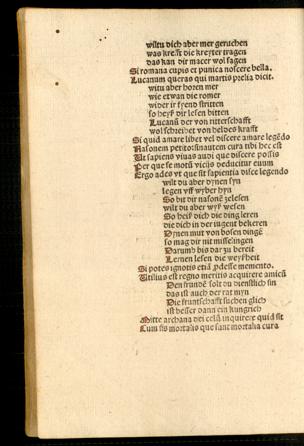 wiltu dich aber mer geruchen
was krefft die kreyter tragen
das kan dir macer wol sagen
Si romana cupis et punica noscere bella.
Lucanum queras qui martis prelia dicit.
wiltu aber horen mer
wie etwan die romer
wider ir fyend stritten
so heyß dir lesen bitten
Lucanū der von ritterschafft
wol schreibet von heldes krafft
Si quid amare libet vel discere amare legēdo
Nasonem petito sin autem cura tibi hec est
Ut sapiens viuas audi que discere possis
Per que se motū vicijs deducitur euum
Ergo ades vt que sit sapientia disce legendo
wilt du aber bynen syn
legen vff wyber hyn
So bit dir nasonē zelesen
wilt du aber wyß wesen
So heiß dich die ding leren
die dich in der iugent bekeren
Dynen mut von bosen dingē
so mag dir nit misselingen
Darumb bis dar zu bereit
Lernen lesen die weyßheit
Si potes ignotis etiā ꝓdesse memento.
Utilius est regno meritis acquirere amicū
Den frundē solt du dienstlich sin
das ist auch der rat myn
Die fruntschafft suchen glich
ist besser dann ein kungrich
Mitte archana dei celū inquirere quid sit
Cum sis mortalis que sunt mortalia cura